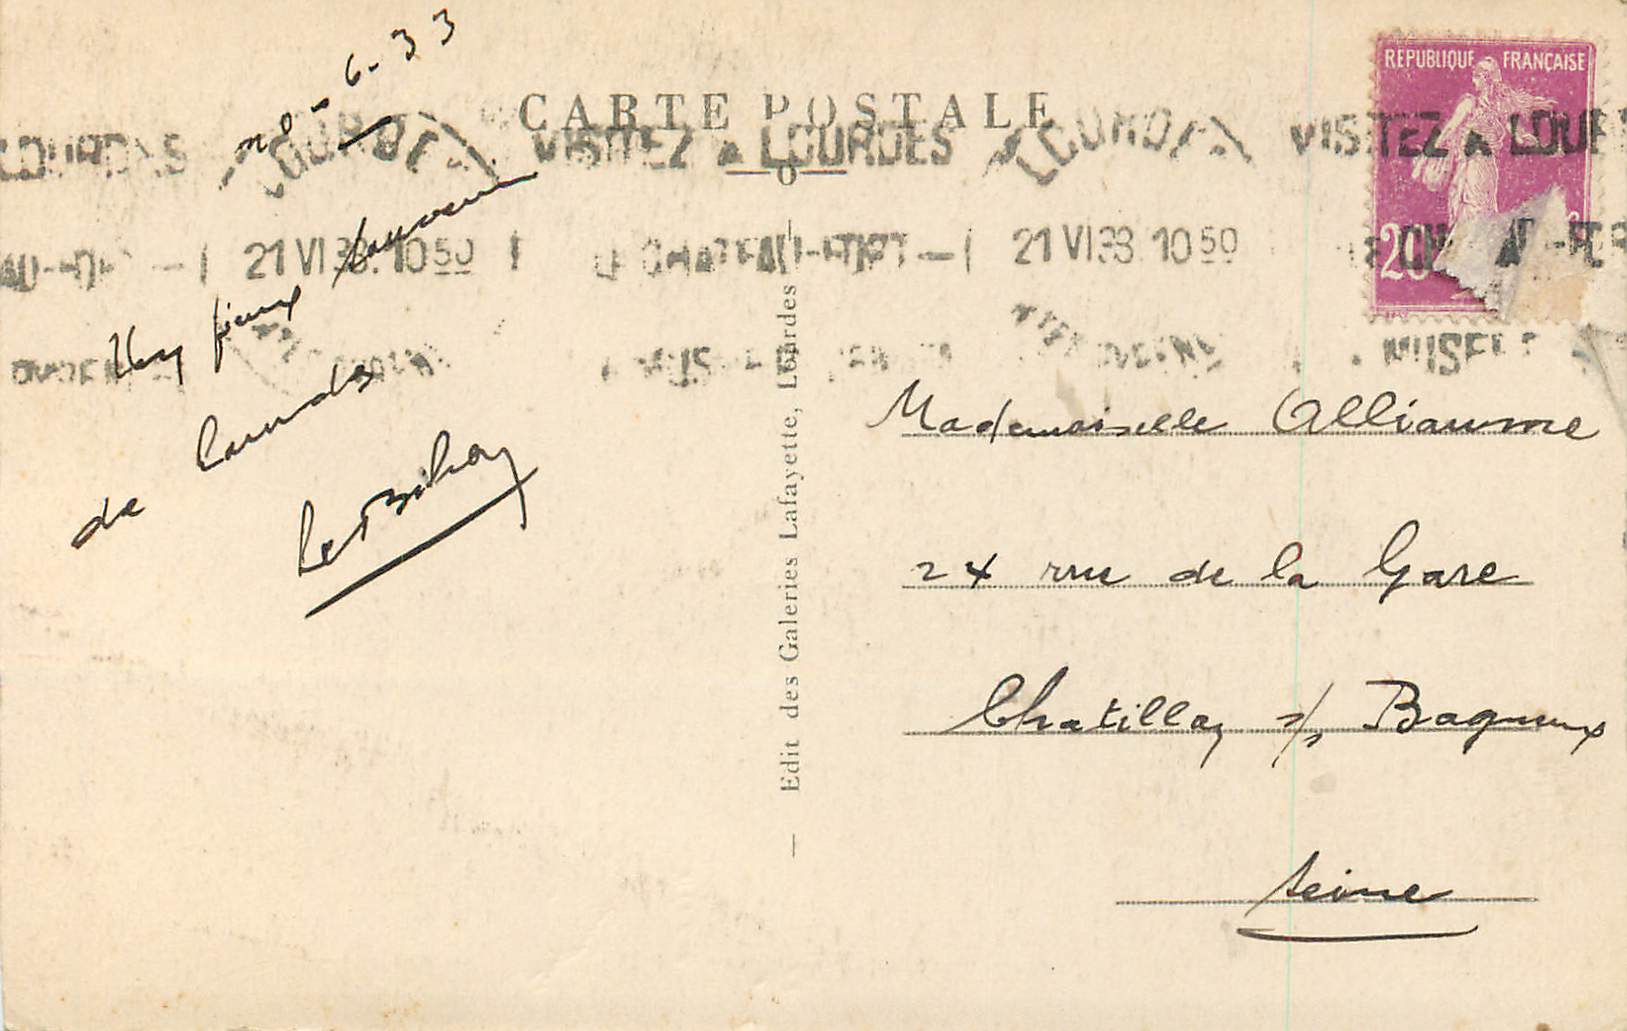 CARTE POSTALE
RÉPUBLIQUE FRANÇAISE
20
LOURDES
VISITEZ A LOURDES
LOURDES
VISITEZ A LOUR
21 VI 33 10 50
LE CHATEAU-FORT
21 VI 33 10 50
MUSEE
-6-33
Un pieux souvenir
de Lourdes
Le Bihan
Edit des Galeries Lafayette, Lourdes
Mademoiselle Alliaume
24 rue de la Gare
Chatillon s/s Bagneux
Seine